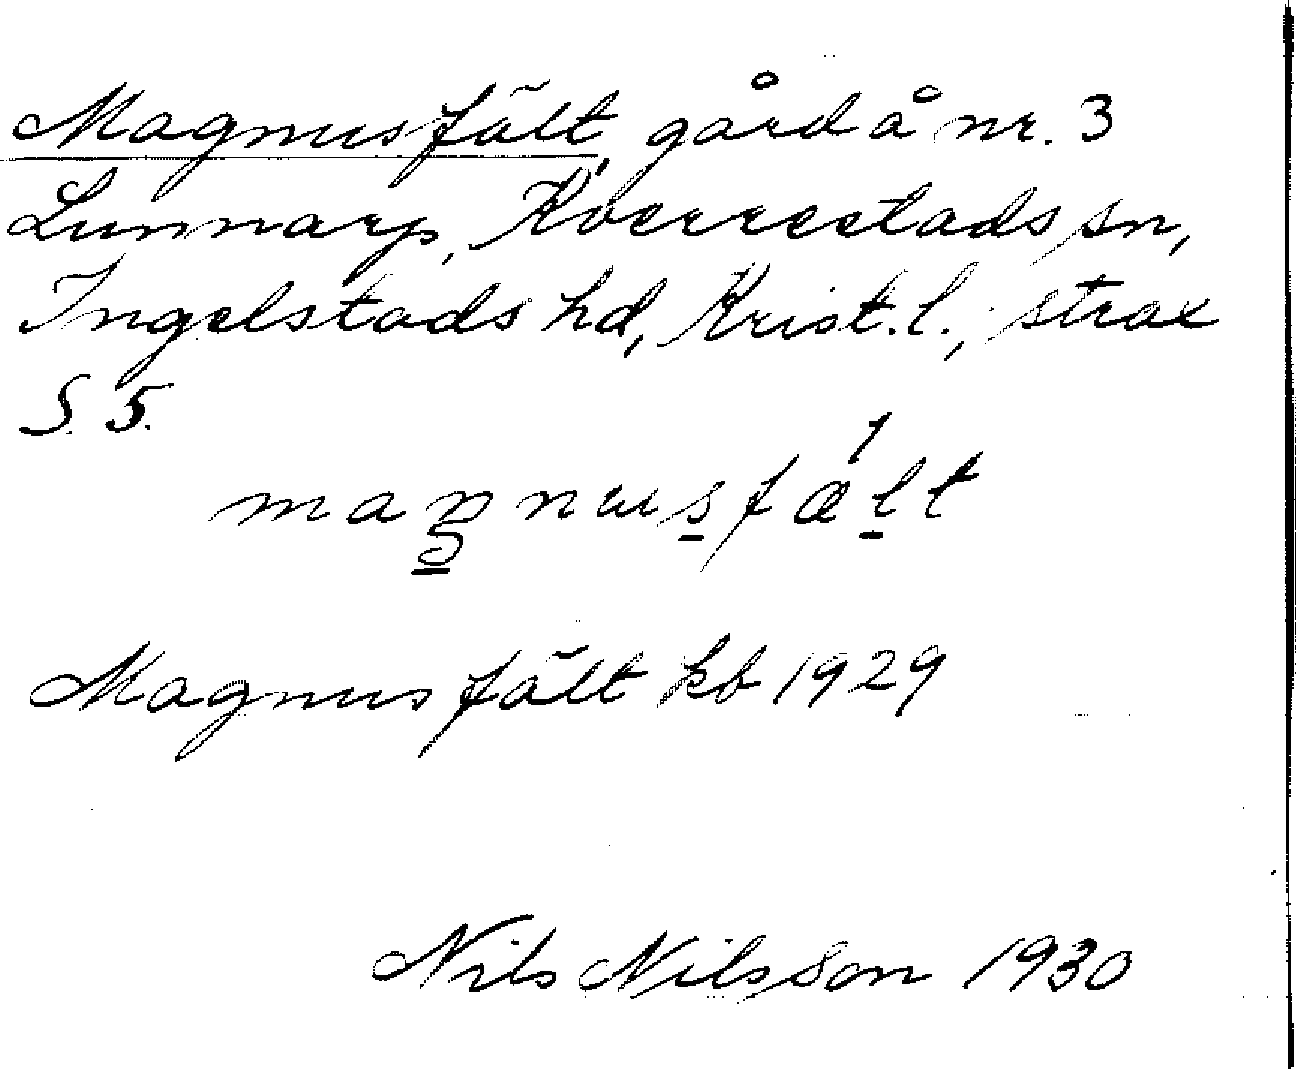 Magnusfält, gård å nr. 3
Lunnarp, Kverrestads sn,
Ingelstads hd, Krist. l.; strax
S. 5.
maŋnusfælt
Magnusfält kb 1929
Nils Nilsson 1930